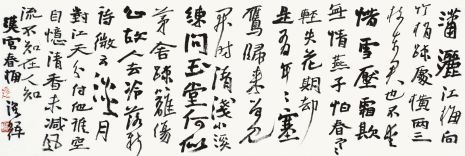 瀟灑江梅向
竹梢疎處橫兩三
枝東君也不愛
惜雪壓霜欺
無情燕子怕春寒
輕失花期却
是有年年塞
鴈歸來曾見
開時清淺小溪
練問玉堂何似
茅舍疎籬傷
心故人去冷落新
詩微云淡月
對江天分付他誰空
自憶清香未減風
流不在人知
漢宮春梅